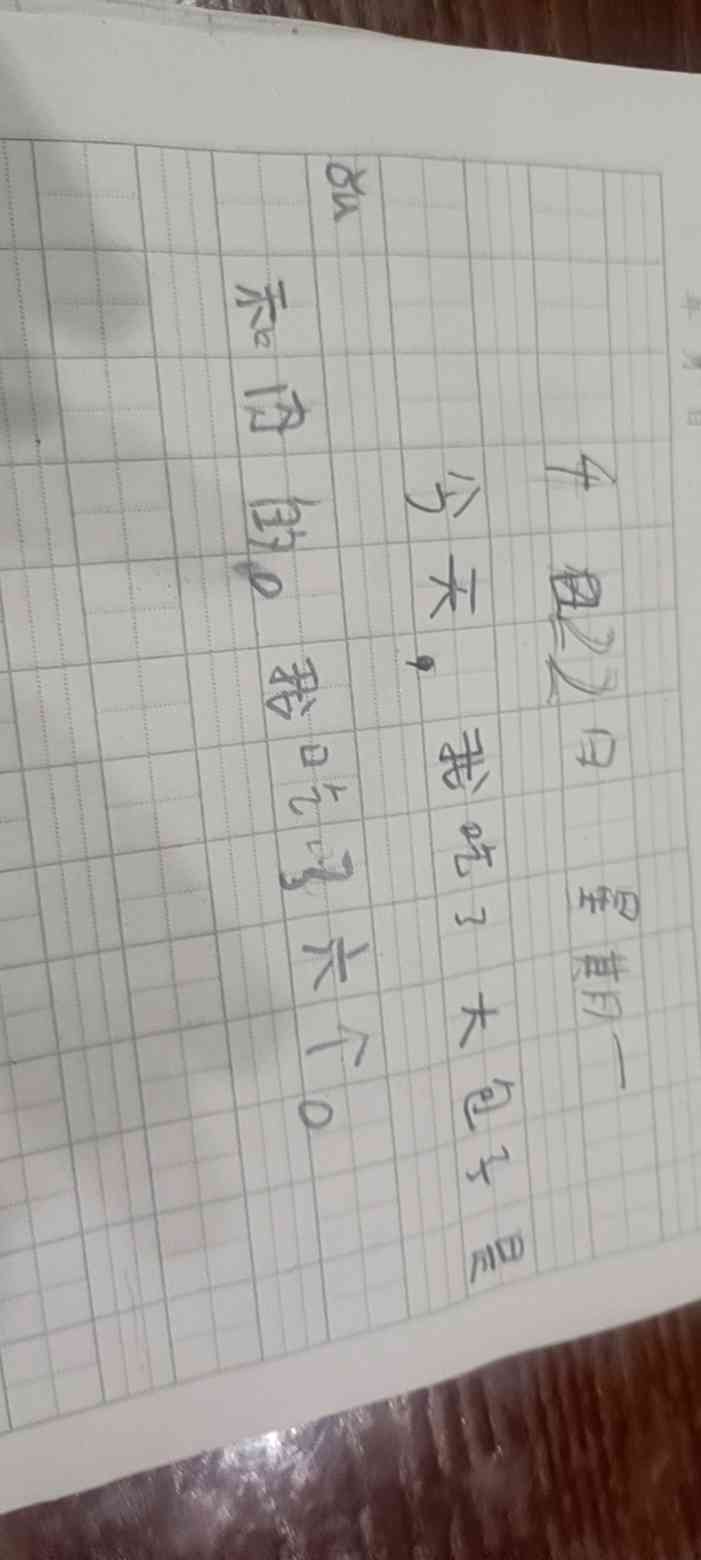 年 月 日
4月22日 星期一
今天，我吃了大包子是
和肉的。我吃了六个。